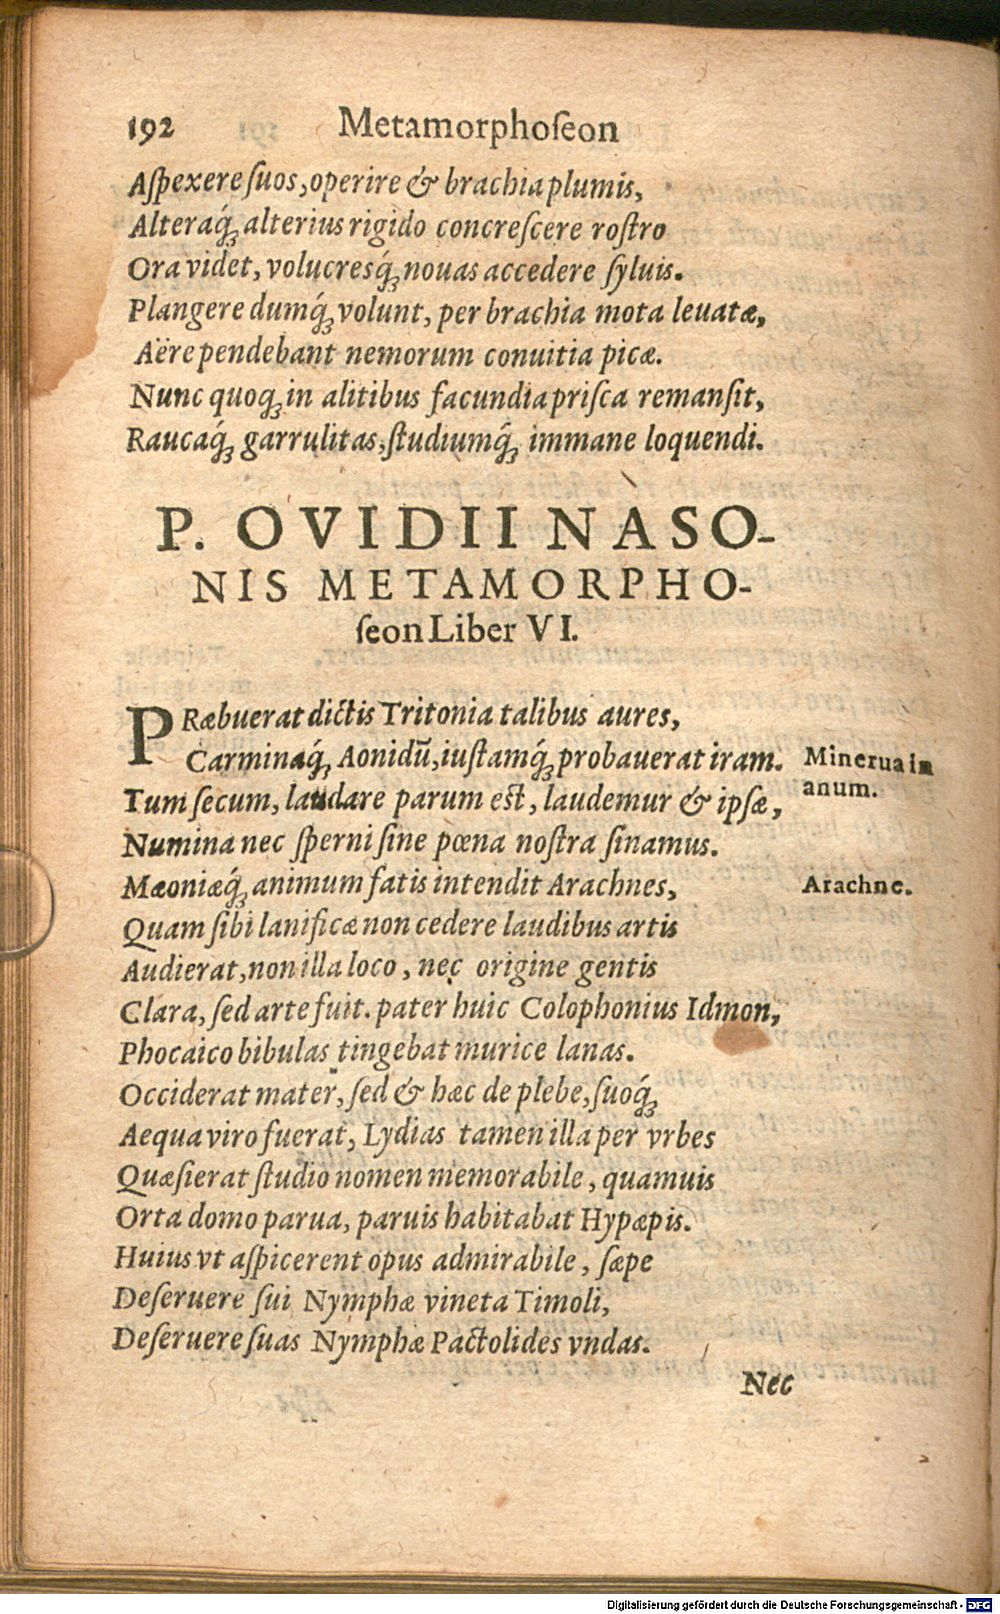 192 Metamorphoſeon
Aſpexere ſuos, operire & brachia plumis,
Alteraq́; alterius rigido concreſcere roſtro
Ora videt, volucresq́; nouas accedere ſyluis.
Plangere dumq́; volunt, per brachia mota leuatæ,
Aëre pendebant nemorum conuitia picæ.
Nunc quoq; in alitibus facundia priſca remanſit,
Raucaq́; garrulitas, ſtudiumq́; immane loquendi.
P. OVIDII NASO-
NIS METAMORPHO-
ſeon Liber VI.
PRæbuerat dictis Tritonia talibus aures,
Carminaq́; Aonidū, iuſtamq́; probauerat iram.
Minerua in
anum.
Tum ſecum, laudare parum eſt, laudemur & ipſæ,
Numina nec ſperni ſine pœna noſtra ſinamus.
Mæoniæq́; animum fatis intendit Arachnes,
Arachne.
Quam ſibi lanificæ non cedere laudibus artis
Audierat, non illa loco, nec origine gentis
Clara, ſed arte fuit. pater huic Colophonius Idmon,
Phocaico bibulas tingebat murice lanas.
Occiderat mater, ſed & hæc de plebe, ſuoq́;
Aequa viro fuerat, Lydias tamen illa per vrbes
Quæſierat ſtudio nomen memorabile, quamuis
Orta domo parua, paruis habitabat Hypæpis.
Huius vt aſpicerent opus admirabile, ſæpe
Deſeruere ſui Nymphæ vineta Timoli,
Deſeruere ſuas Nymphæ Pactolides vndas.
Nec
Digitalisierung gefördert durch die Deutsche Forschungsgemeinschaft - DFG